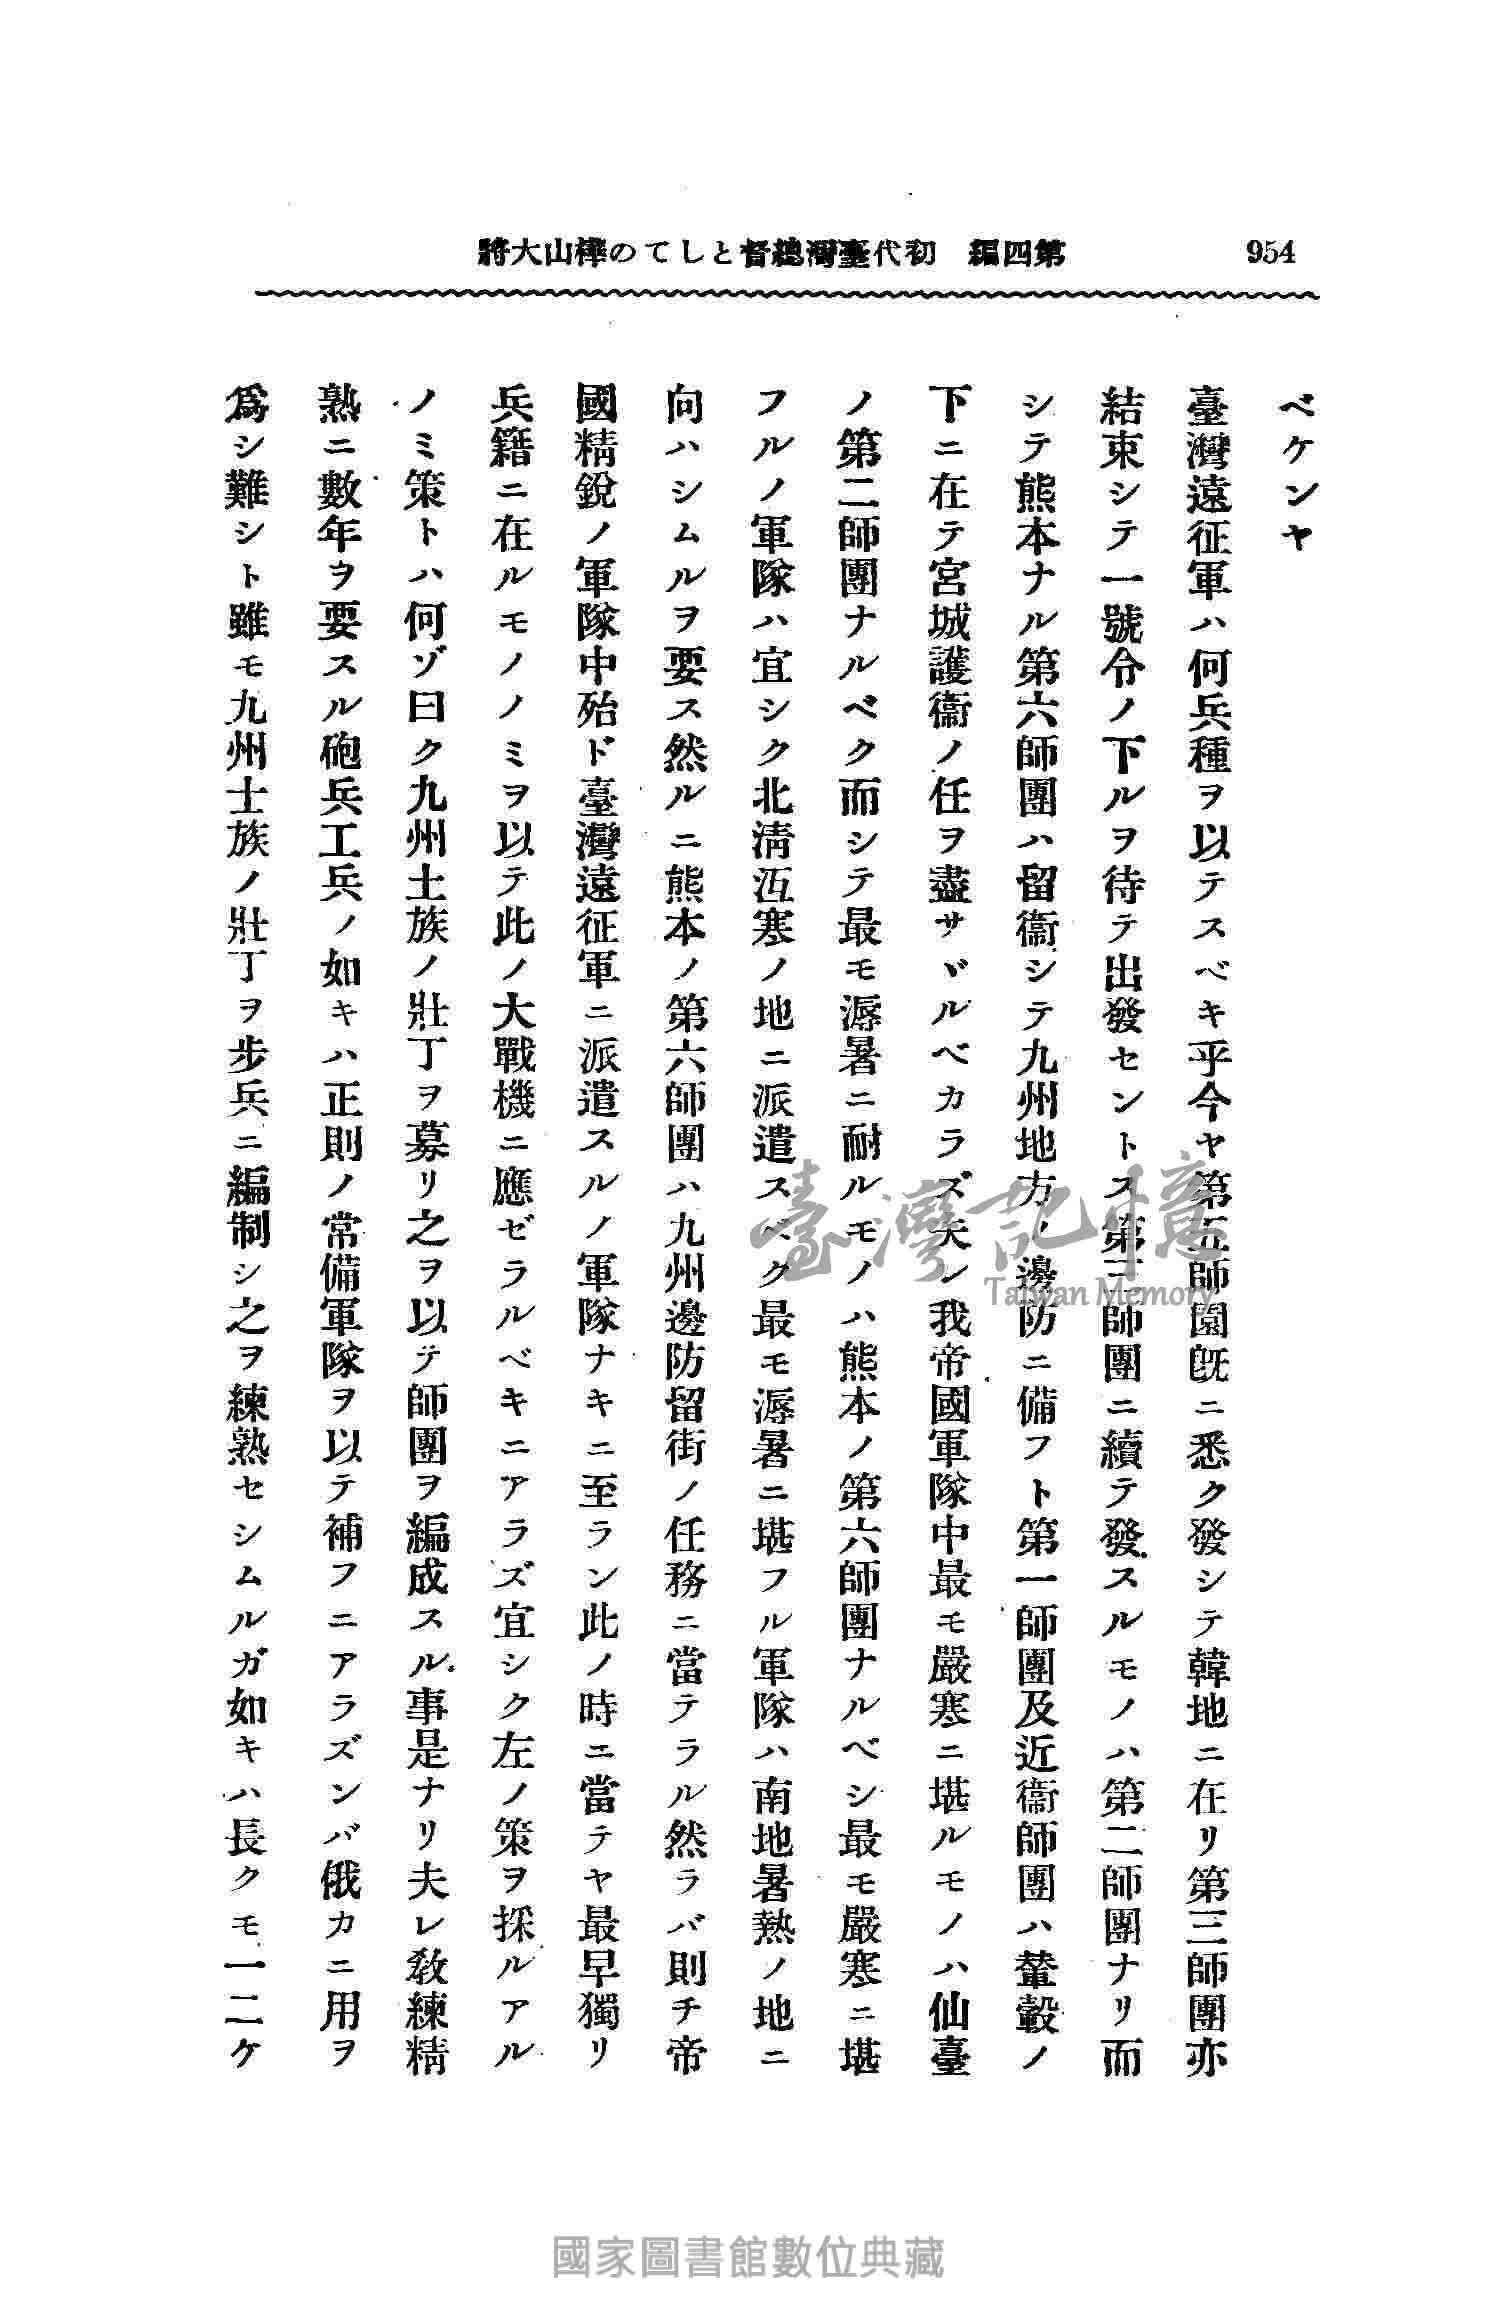 954
第四編　初代臺灣總督としての樺山大將
ベケンヤ
臺灣遠征軍ハ何兵種ヲ以テスベキ乎今ヤ第五師團既ニ悉ク發シテ韓地ニ在リ第三師團亦
結束シテ一號令ノ下ルヲ待テ出發セントス第三師團ニ續テ發スルモノハ第二師團ナリ而
シテ熊本ナル第六師團ハ留衞シテ九州地方ノ邊防ニ備フト第一師團及近衞師團ハ輦轂ノ
下ニ在テ宮城護衞ノ任ヲ盡サヾルベカラズ夫レ我帝國軍隊中最モ嚴寒ニ堪ルモノハ仙臺
ノ第二師團ナルベク而シテ最モ溽暑ニ耐ルモノハ熊本ノ第六師團ナルベシ最モ嚴寒ニ堪
フルノ軍隊ハ宜シク北淸冱寒ノ地ニ派遣スベク最モ溽暑ニ堪フル軍隊ハ南地暑熱ノ地ニ
向ハシムルヲ要ス然ルニ熊本ノ第六師團ハ九州邊防留街ノ任務ニ當テラル然ラバ則チ帝
國精銳ノ軍隊中殆ド臺灣遠征軍ニ派遣スルノ軍隊ナキニ至ラン此ノ時ニ當テヤ最早獨リ
兵籍ニ在ルモノノミヲ以テ此ノ大戰機ニ應ゼラルベキニアラズ宜シク左ノ策ヲ採ルアル
ノミ策トハ何ゾ曰ク九州士族ノ壯丁ヲ募リ之ヲ以テ師團ヲ編成スル事是ナリ夫レ敎練精
熟ニ數年ヲ要スル砲兵工兵ノ如キハ正則ノ常備軍隊ヲ以テ補フニアラズンバ俄カニ用ヲ
爲シ難シト雖モ九州士族ノ壯丁ヲ步兵ニ編制シ之ヲ練熟セシムルガ如キハ長クモ一二ケ
臺灣記憶
Taiwan Memory
國家圖書館數位典藏